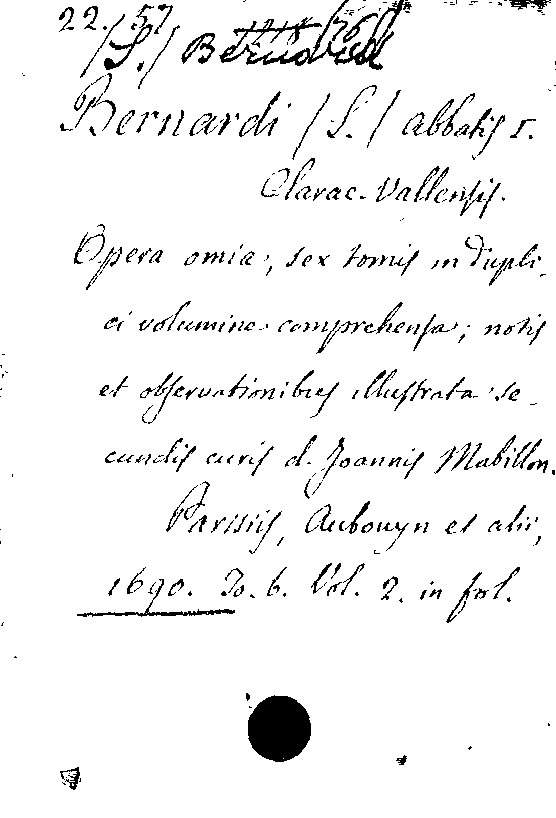 22. 57
/S./ Bernard
Bernardi /S./ abbatis I.
Clarae-Vallensis.
Opera omia, sex tomis in Dupli-
ci volumine comprehensa; notis
et observationibus illustrata se-
cundis curis d. Joannis Mabillon.
Parisiis, Aubouyn et alii,
1690. To. 6. Vol. 2. in fol.